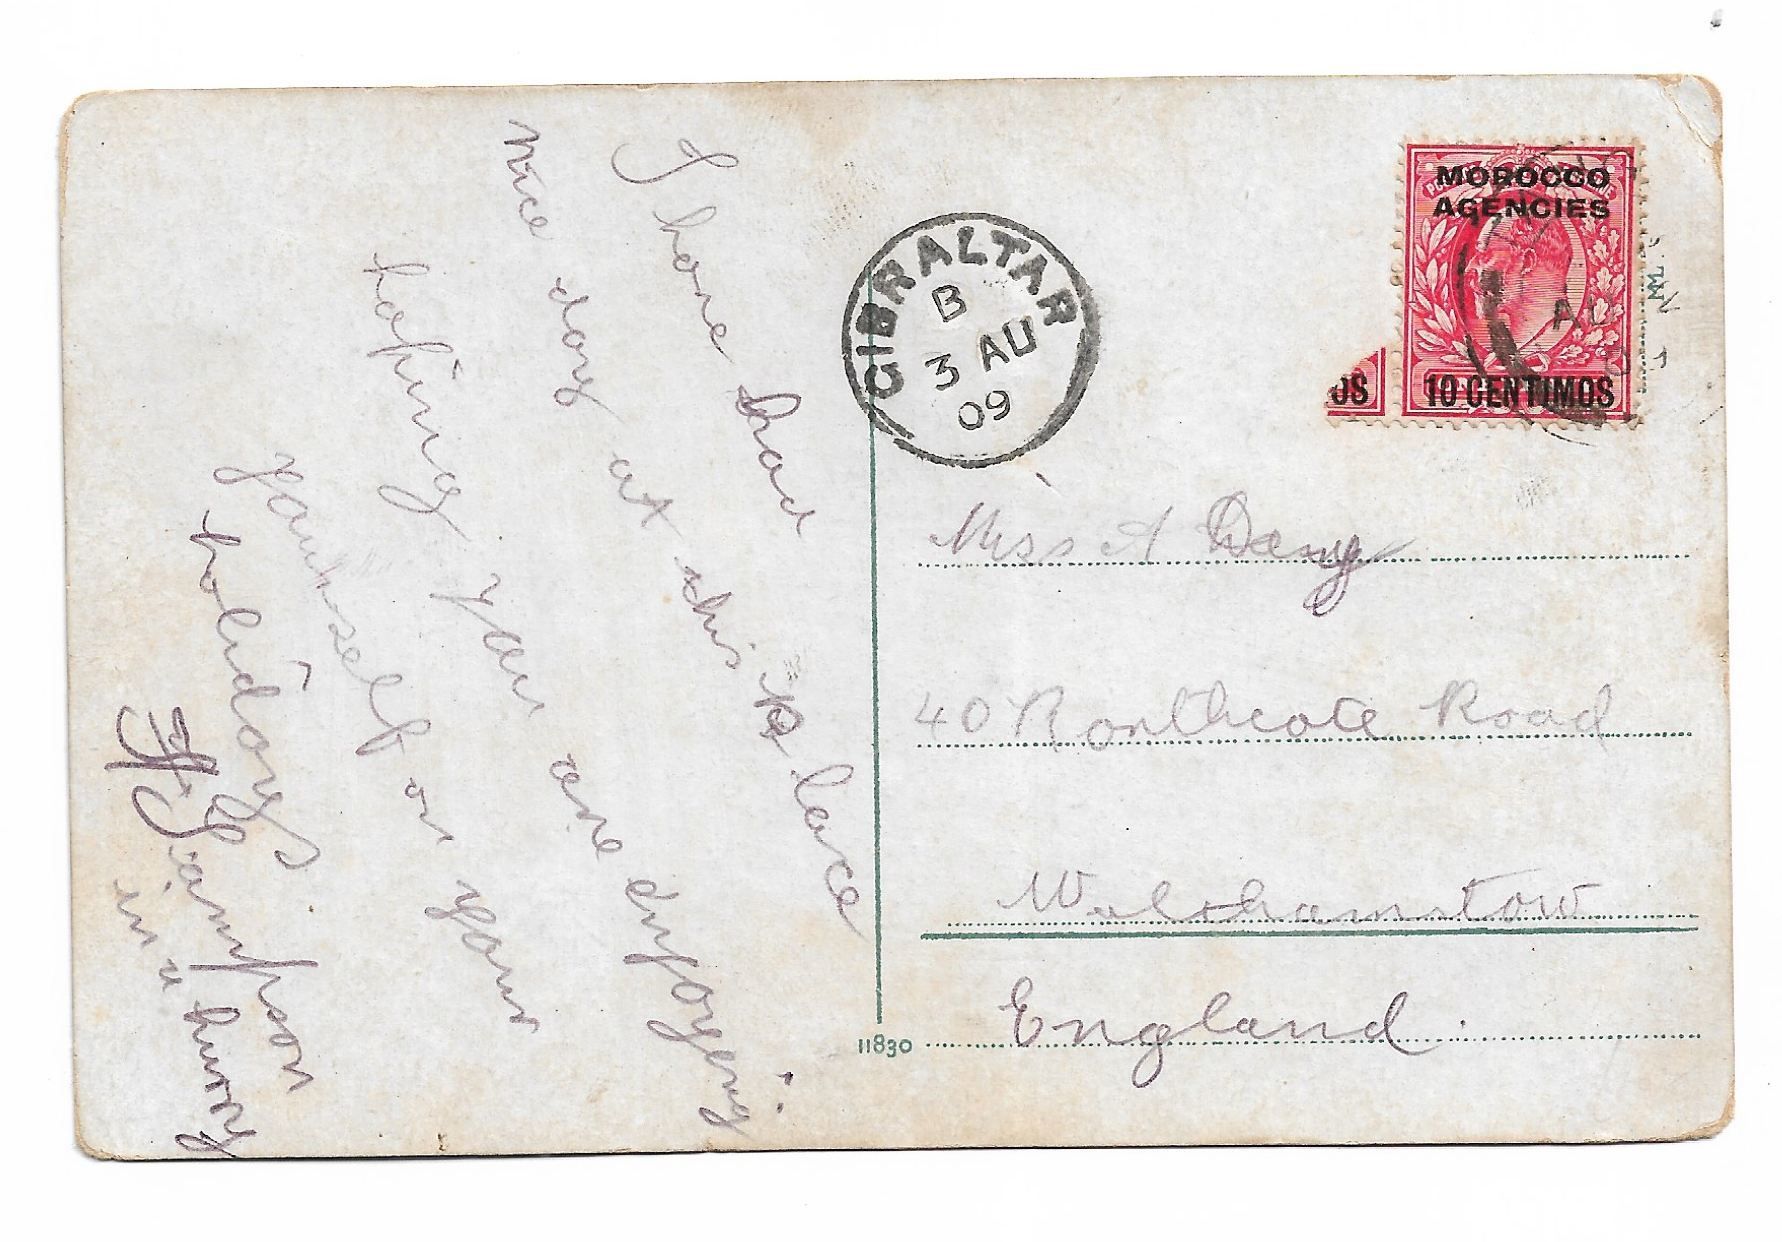 I have had
nice day at this place
hoping you are enjoying
yourself on your
holidays
H Sampson
in a hurry
GIBRALTAR
B
3 AU
09
MOROCCO
AGENCIES
10 CENTIMOS
OS
AU
Miss A
40 Northcote Road
Walthamstow
England.
11830